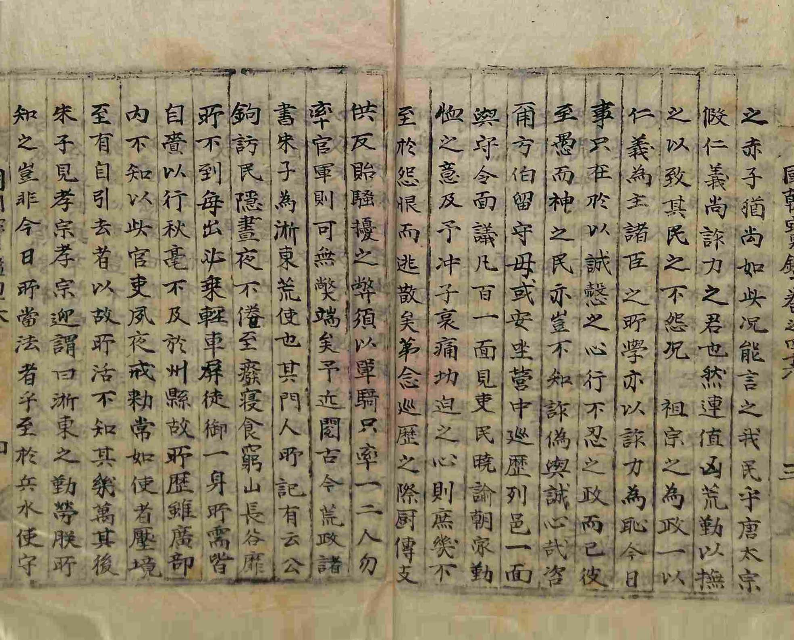 國朝寶鑑卷之四十六
三
之赤子猶尚如此况能言之我民乎唐太宗
假仁義尚詐力之君也然連值凶荒勤以撫
之以致其民之不怨况 祖宗之為政一以
仁義為主諸臣之所學亦以詐力為恥今日
事只在於以誠慤之心行不忍之政而已彼
至愚而神之民亦豈不知詐偽與誠心哉咨
爾方伯留守毋或安坐營中巡歷列邑一面
與守令面議凡百一面見吏民曉諭朝家勤
恤之意及予冲子哀痛切迫之心則庶幾不
至於怨恨而逃散矣第念巡歷之際厨傳支
供反貽騷擾之弊須以單騎只率一二人勿
率官軍則可無弊端矣予近閱古今荒政諸
書朱子為浙東荒使也其門人所記有云公
鉤訪民隱晝夜不倦至癈寢食窮山長谷靡
所不到每出必乘輕車屛徒御一身所需皆
自賫以行秋毫不及於州縣故所歷雖廣部
內不知以此官吏夙夜戒勑常如使者壓境
至有自引去者以故所活不知其幾萬其後
朱子見孝宗孝宗迎謂曰浙東之勤勞朕所
知之豈非今日所當法者乎至於兵水使守